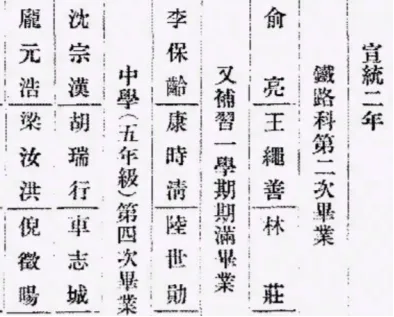 宣統二年
鐵路科第二次畢業
俞亮 王繩善 林莊
又補習一學期期滿畢業
李保齡 康時清 陸世勛
中學(五年級)第四次畢業
沈宗漢 胡瑞行 車志城
龐元浩 梁汝洪 倪徵暘